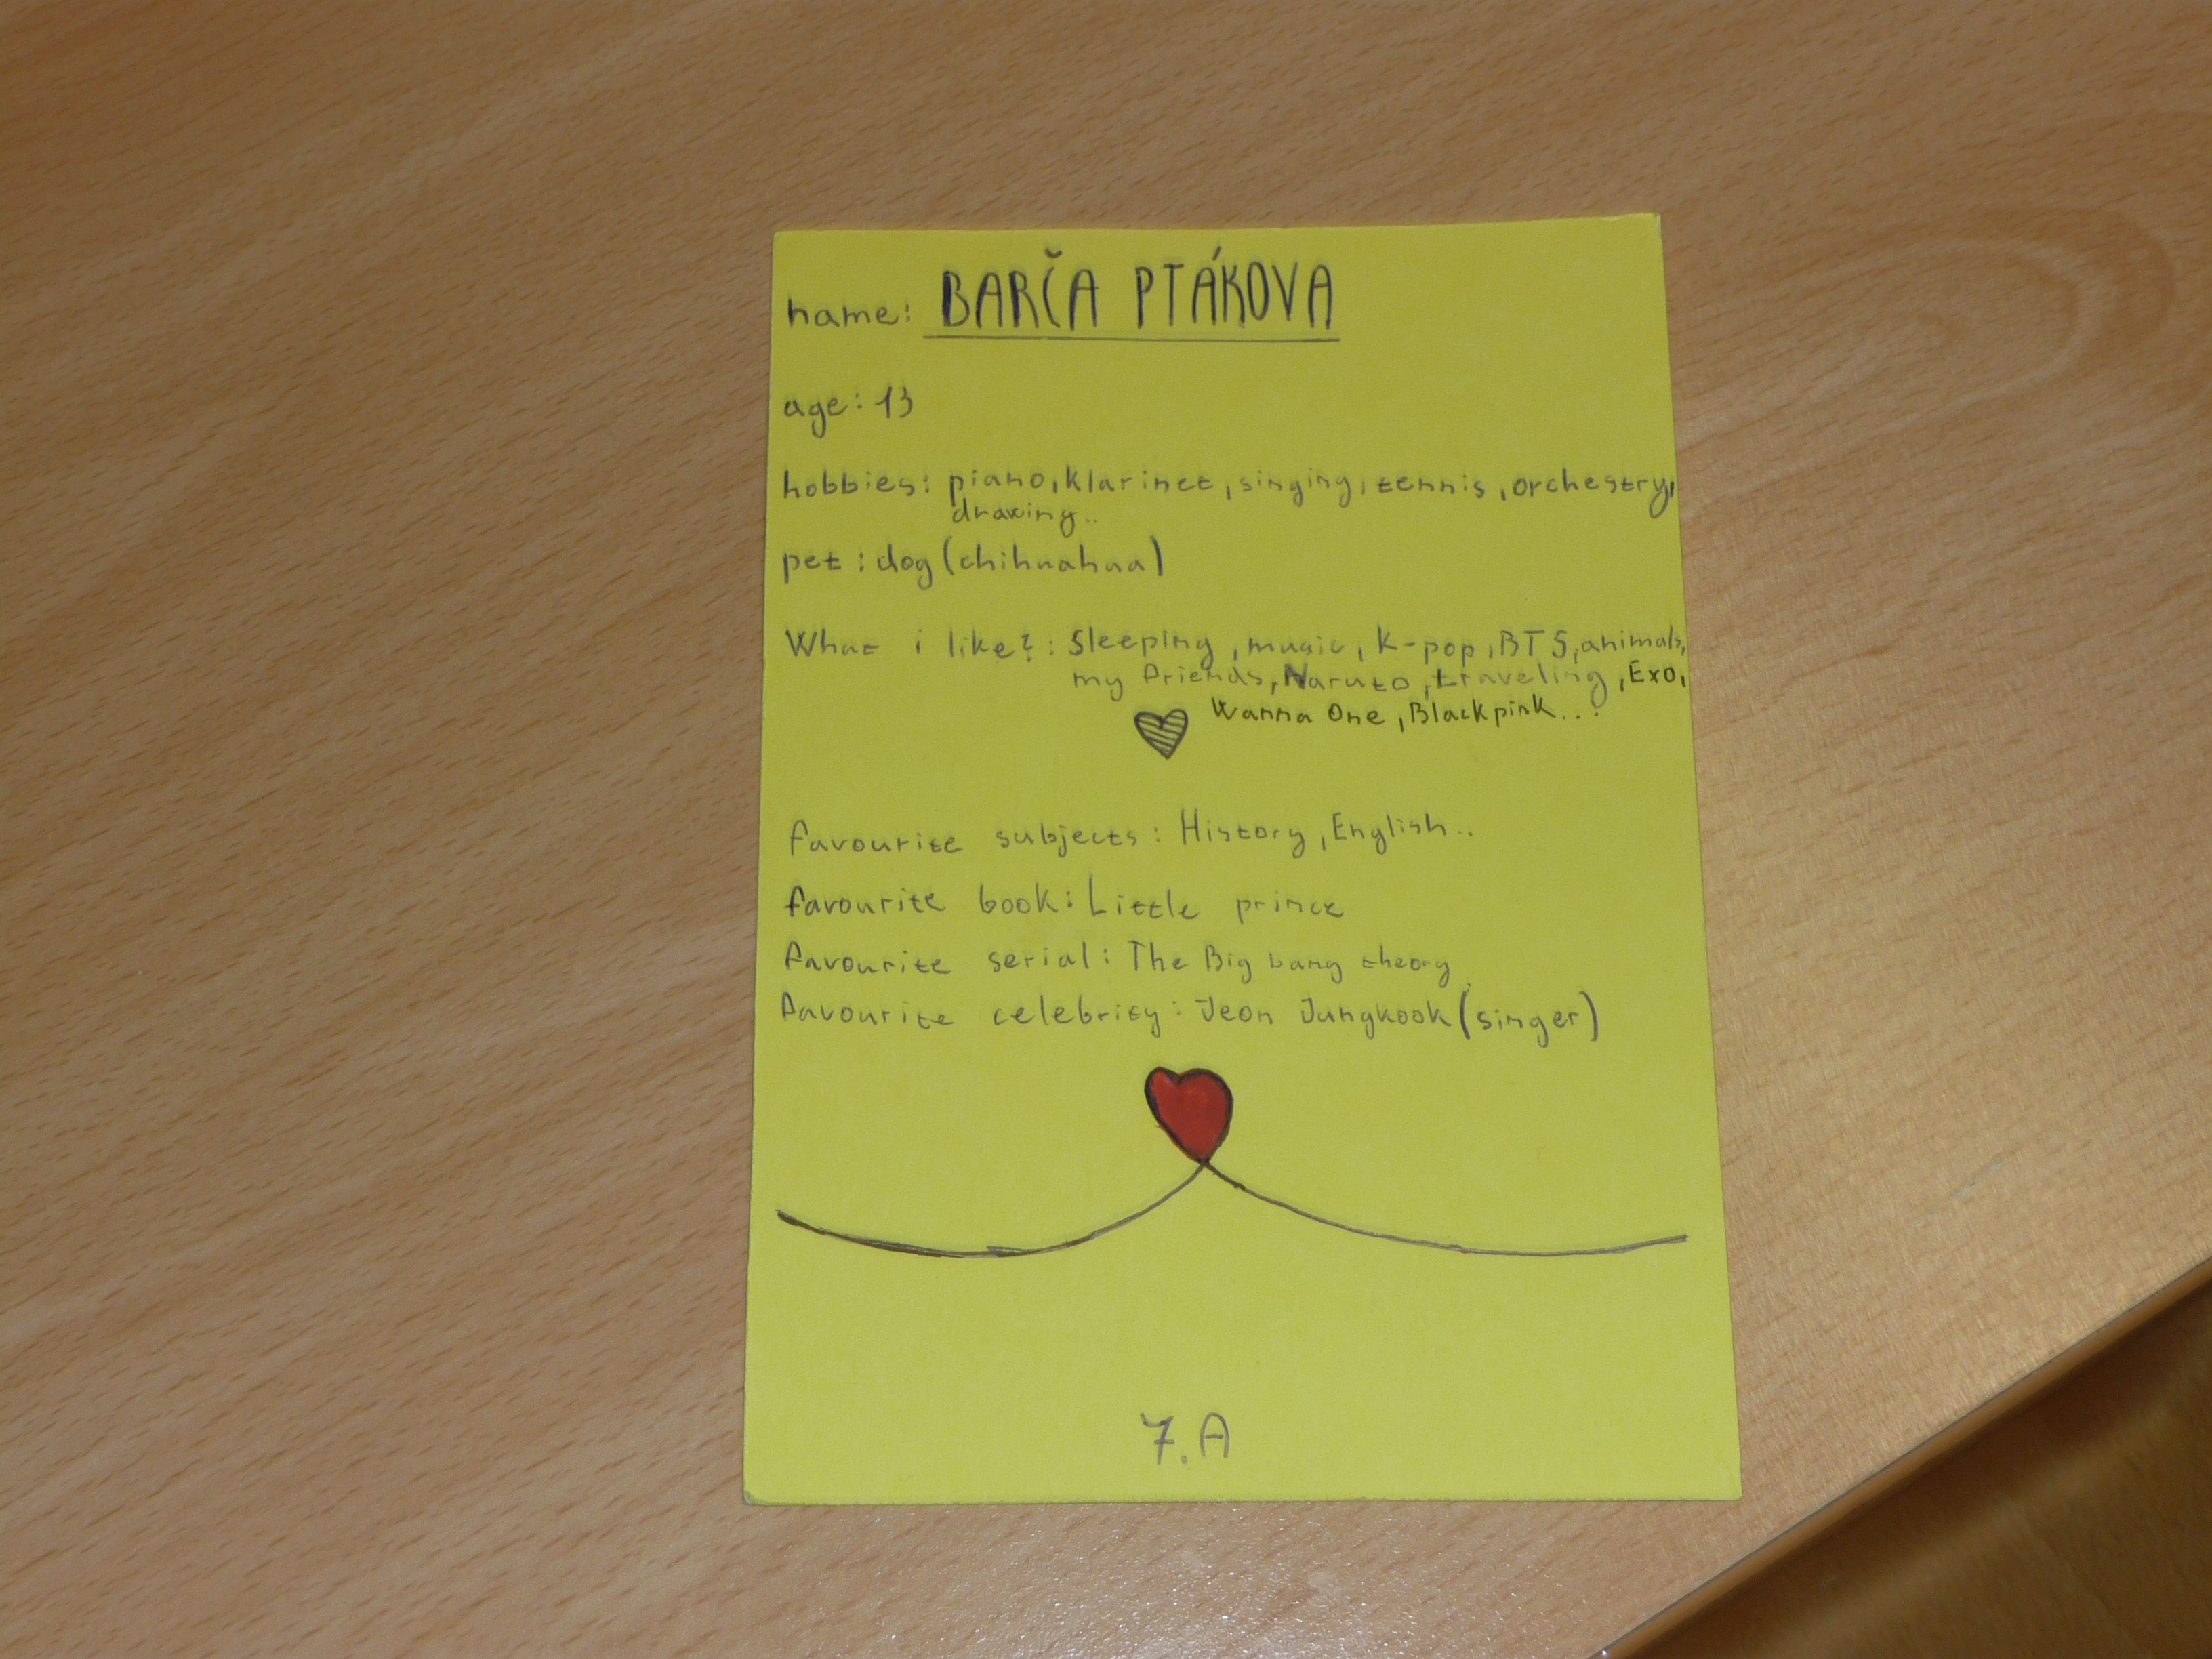 name: BARČA PTÁKOVA
age: 13
hobbies: piano, klarinet, singing, tennis, orchestry,
drawing..
pet: dog (chihuahua)
What i like?: Sleeping, music, K-pop, BTS, animals,
my friends, Naruto, traveling, Exo,
Wanna One, Blackpink...
favourite subjects: History, English..
favourite book: Little prince
favourite serial: The Big bang theory
favourite celebrity: Jeon Jungkook (singer)
7.A